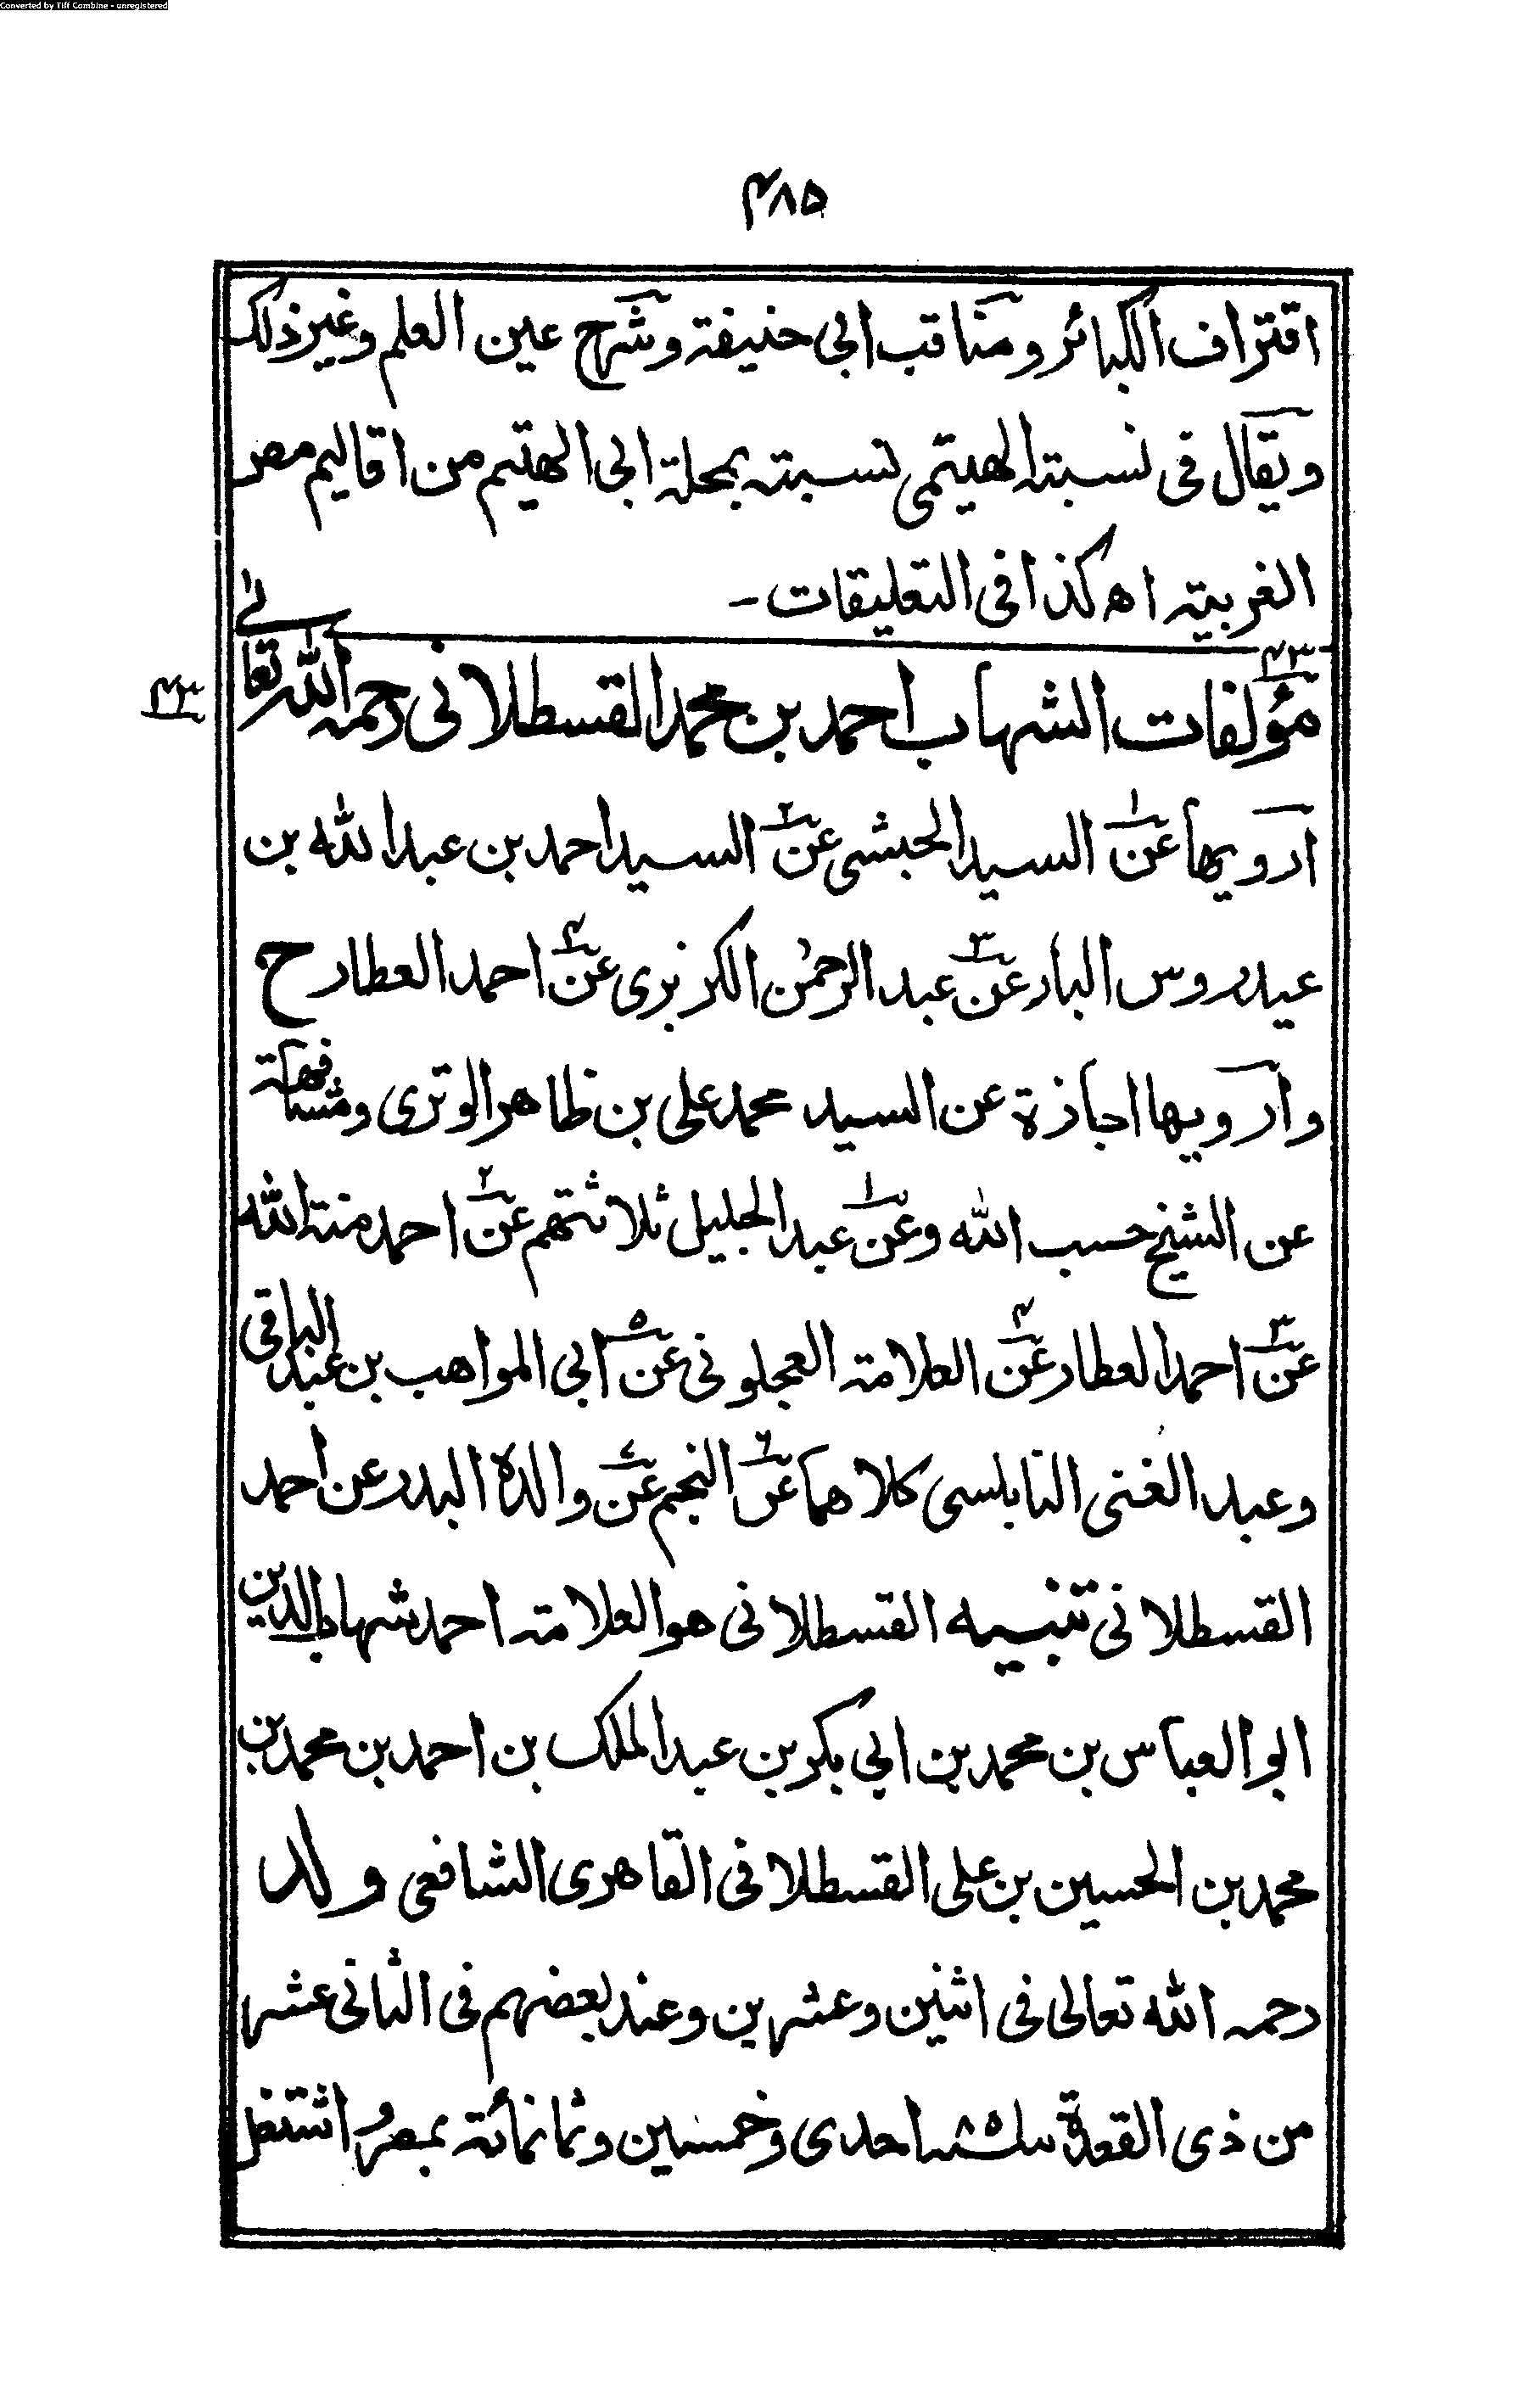 Converted by Tiff Combine - unregistered
۴۸۵
اقتراف الکبائر ومناقب ابی حنیفة وشرح عین العلم وغیر ذلک
ویقال فی نسبته الهیتمی نسبته بمحلة ابی الهتیم من اقالیم مصر
الغربیة اه کذا فی التعلیقات -
۴۳
۴۳
مؤلفات الشهاب احمد بن محمد القسطلانی رحمه الله تعالٰی
ارویها عن۱ السید الحبشی عن۲ السید احمد بن عبد الله بن
عیدروس البار عن۳ عبد الرحمٰن الکزبری عن۴ احمد العطار ح
وارویها اجازة عن السید محمد علی بن ظاهر الوتری ومشافهة
عن الشیخ حسب الله وعن۱ عبد الجلیل ثلاثتهم عن۲ احمد منة الله
عن۳ احمد العطار عن۴ العلامة العجلونی عن۵ ابی المواهب بن عبد الباقی
وعبد الغنی النابلسی کلاهما عن۶ النجم عن۷ والده البدر عن احمد
القسطلانی تنبیه القسطلانی هو العلامة احمد شهاب الدین
ابو العباس بن محمد بن ابی بکر بن عبد الملک بن احمد بن محمد بن
محمد بن الحسین بن علی القسطلانی القاهری الشافعی ولد
رحمه الله تعالی فی اثنین وعشرین وعند بعضهم فی الثانی عشر
من ذی القعدة سنة ۸۵۱ احدی وخمسین وثمانمائة بمصر واشتغل